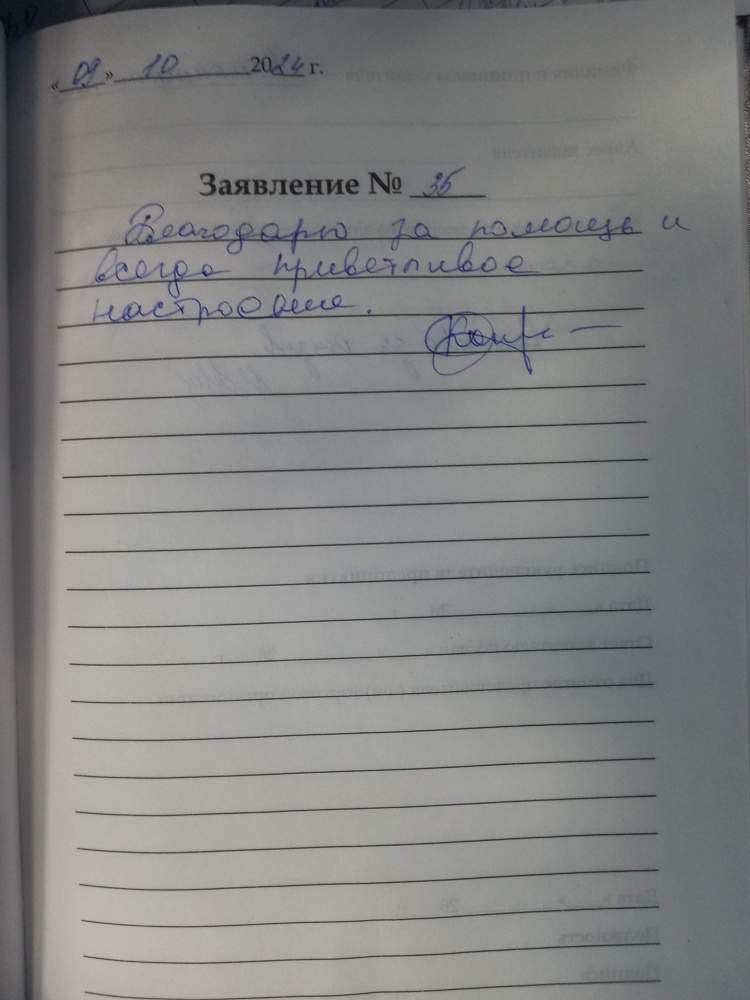 « 09 » 10 2024 г.
Заявление № 35
Благодарю за помощь и
всегда приветливое
настроение.